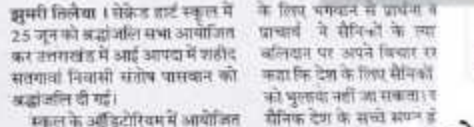 झुमरी तिलैया । सेक्रेड हार्ट स्कूल में
25 जून को श्रद्धांजलि सभा आयोजित
कर उत्तराखंड में आई आपदा में शहीद
सतगावां निवासी संतोष पासवान को
श्रद्धांजलि दी गई।
स्कूल के ऑडिटोरियम में आयोजित
के लिए भगवान से प्रार्थना
प्राचार्य ने सैनिकों के
बलिदान पर अपने विचार
कहा कि देश के लिए सैनिकों
को भुलाया नहीं जा सकता।
सैनिक देश के सच्चे